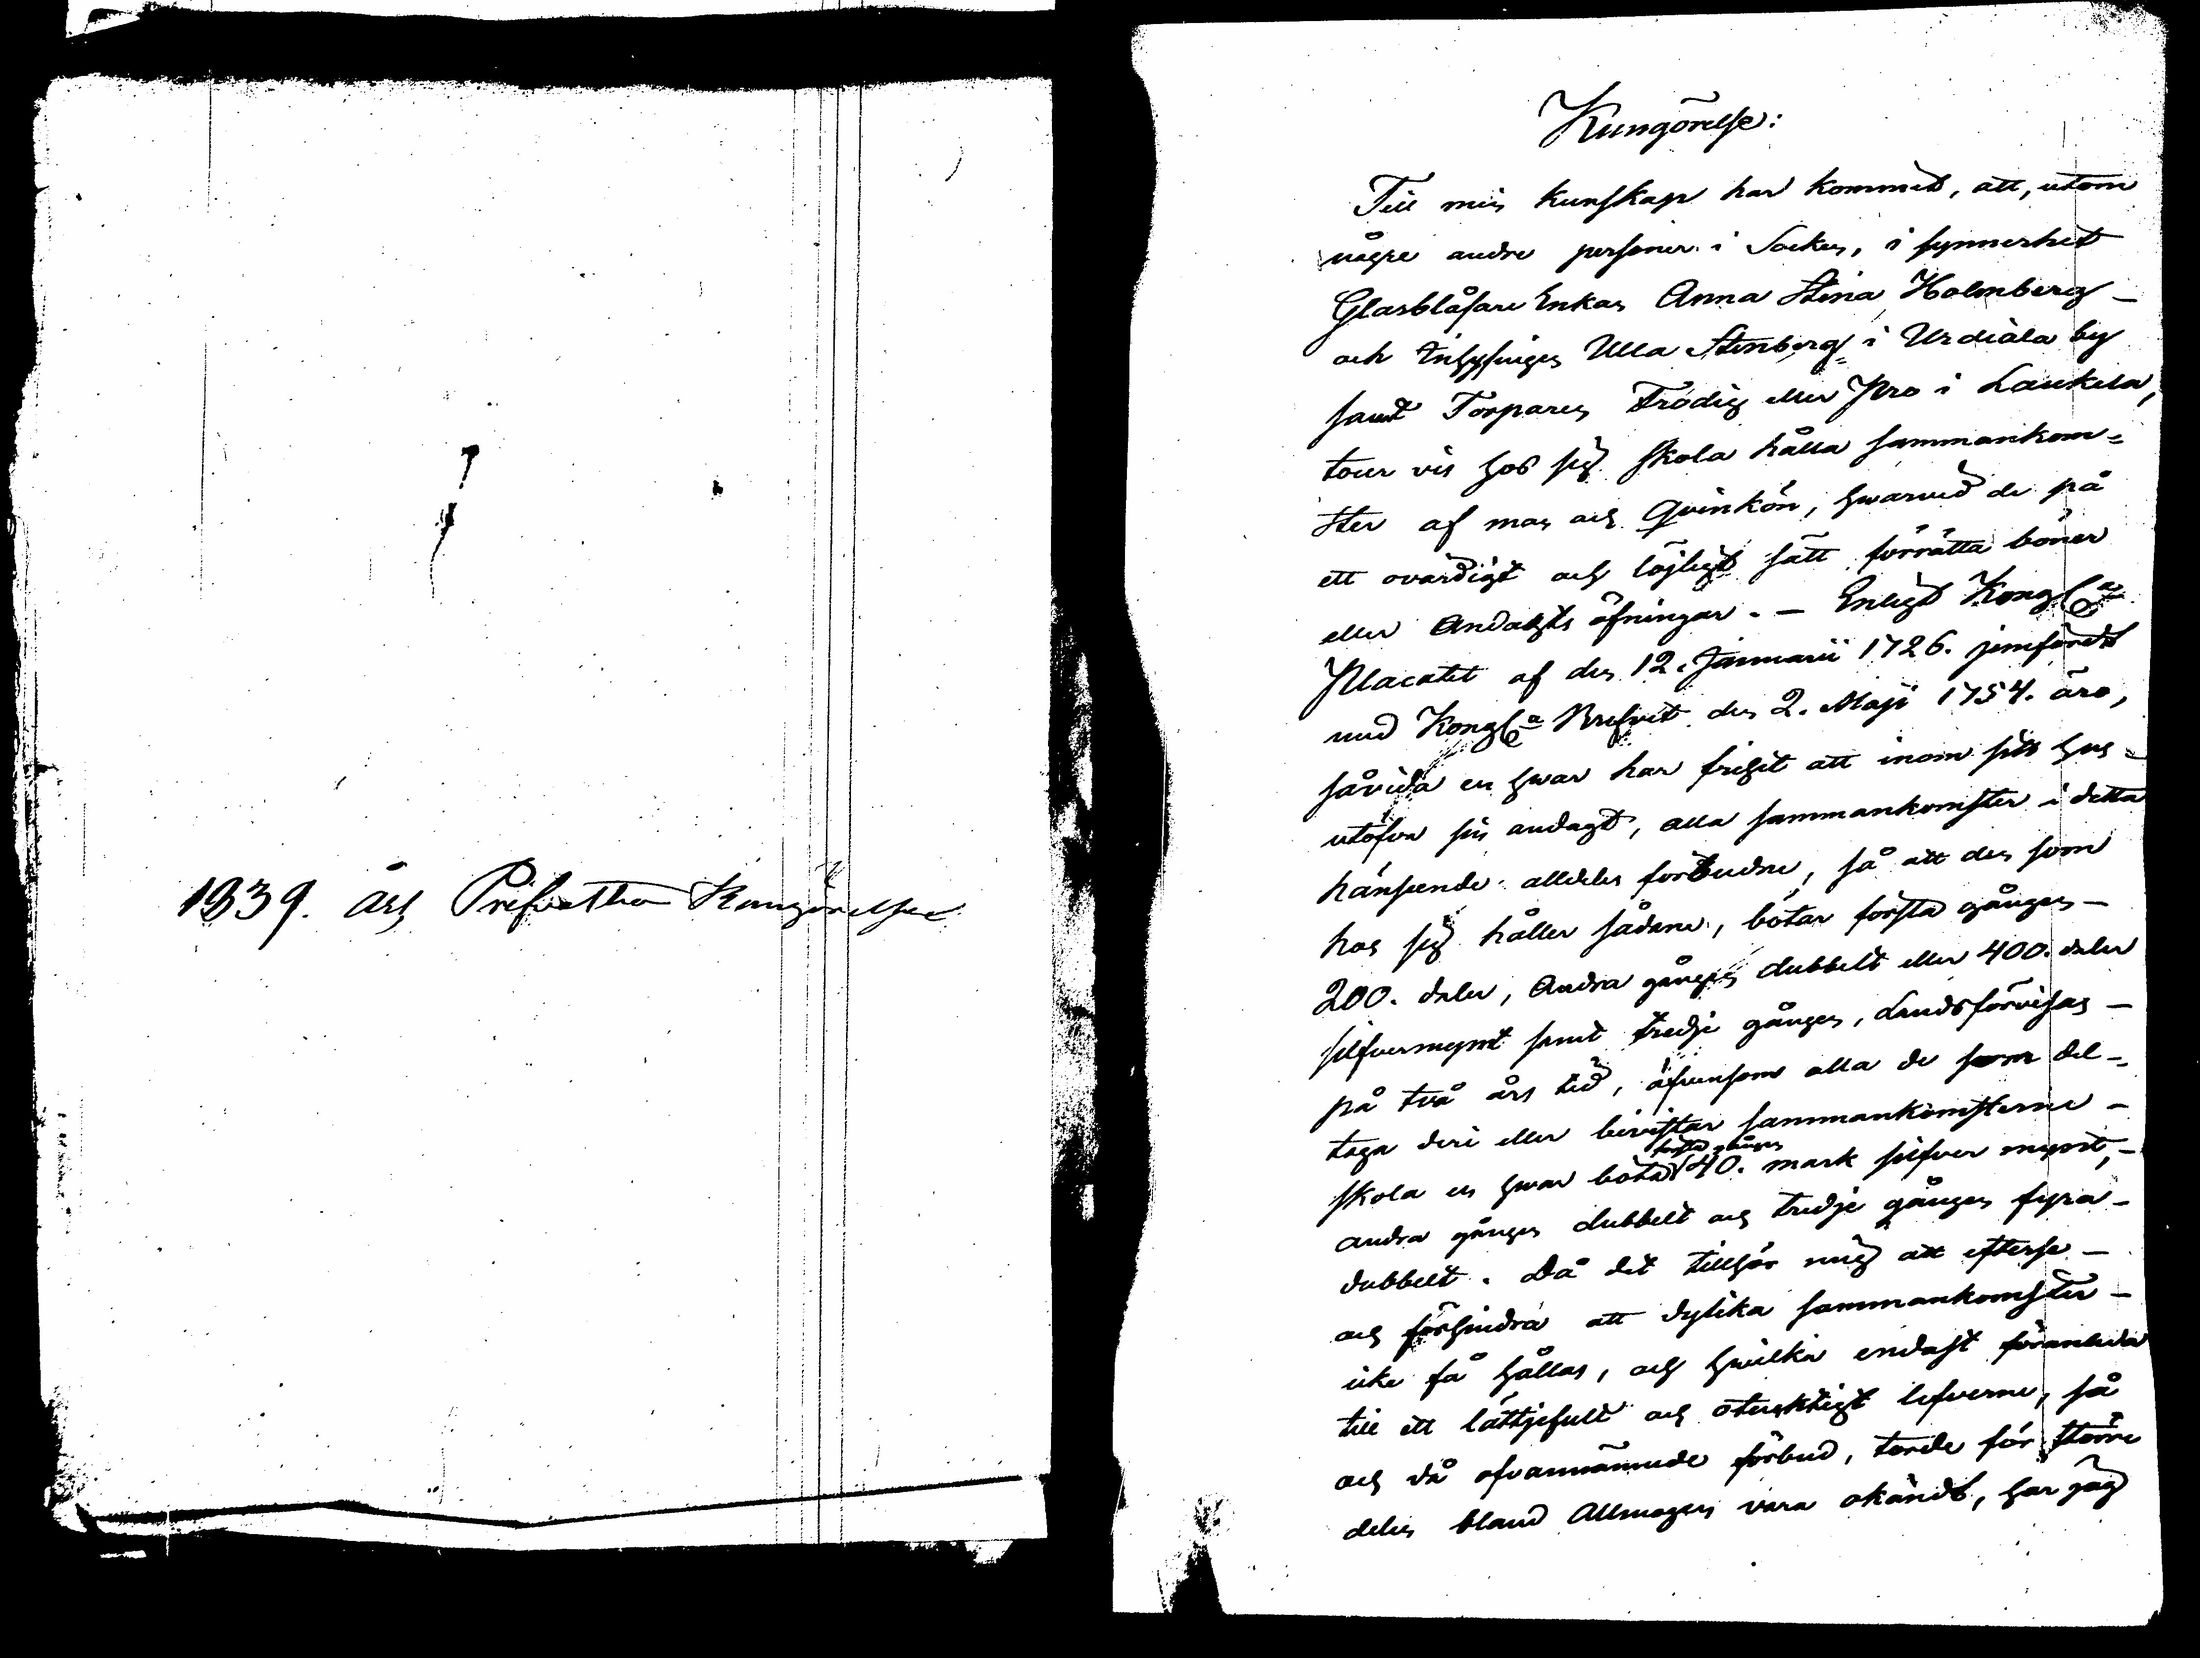 1839. Års Prifvatha Kungörelser
Kungörelse:
Till min kunskap har kommit, att, utom
någre andre personer i Socken, i synnerhet
Glasblåsare Enkan Anna Stina Holmberg
och Inhysingen Ulla Stenberg i Urdiala by
samt Torparen Frödig eller Pro i Laukela,
tour vis hos sig skola hålla sammankom-
ster af man och Qvinkön, hvarvid de på
ett ovärdigt och löjligt sätt förrätta böner
eller Andagts öfningar. – Enligt Kongl.a
Placatet af den 12. Januarii 1726. jemfördt
med Kongl.a Brefvet den 2. Maji 1754. äro,
såvida en hvar har frihet att inom sitt hus
utöfva sin andagt, alla sammankomster i detta
hänseende alldeles förbudne, så att den som
hos sig håller sådane, bötar första gången –
200. daler, Andra gången dubbelt eller 400. daler
silfvermynt samt tredje gången, Landsförvisas –
på två års tid, äfvensom alla de som del-
taga deri eller bevistar sammankomsterne –
skola en hvar böta första gången 40. mark silfver mynt, –
andra gången dubbelt och tredje gången fyra-
dubbelt. Då det tillhör mig att efterse –
och förhindra att dylika sammankomster –
icke få hållas, och hvilka endast föranleda
till ett lättjefullt och otuktigt lefverne, så
och då ofvannämnde förbud, torde för större
delen bland Allmogen vara okändt, har jag